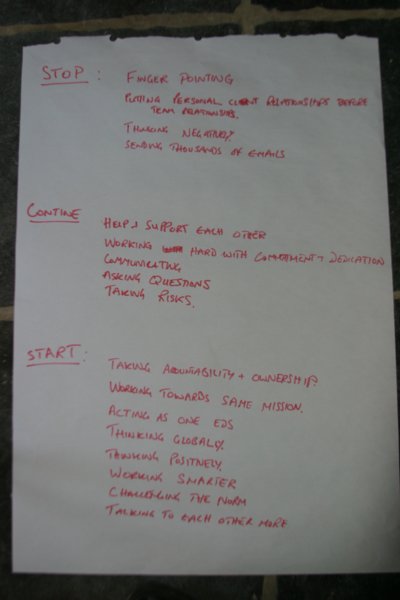 STOP :
FINGER POINTING
PUTTING PERSONAL CLIENT RELATIONSHIPS BEFORE
TEAM RELATIONSHIPS.
THINKING NEGATIVELY
SENDING THOUSANDS OF EMAILS
CONTINE
HELP & SUPPORT EACH OTHER
WORKING HARD WITH COMMITMENT + DEDICATION
COMMUNICATING
ASKING QUESTIONS
TAKING RISKS.
START :
TAKING ACCOUNTABILITY + OWNERSHIP
WORKING TOWARDS SAME MISSION.
ACTING AS ONE EDS
THINKING GLOBALLY.
THINKING POSITIVELY.
WORKING SMARTER
CHALLENGING THE NORM
TALKING TO EACH OTHER MORE